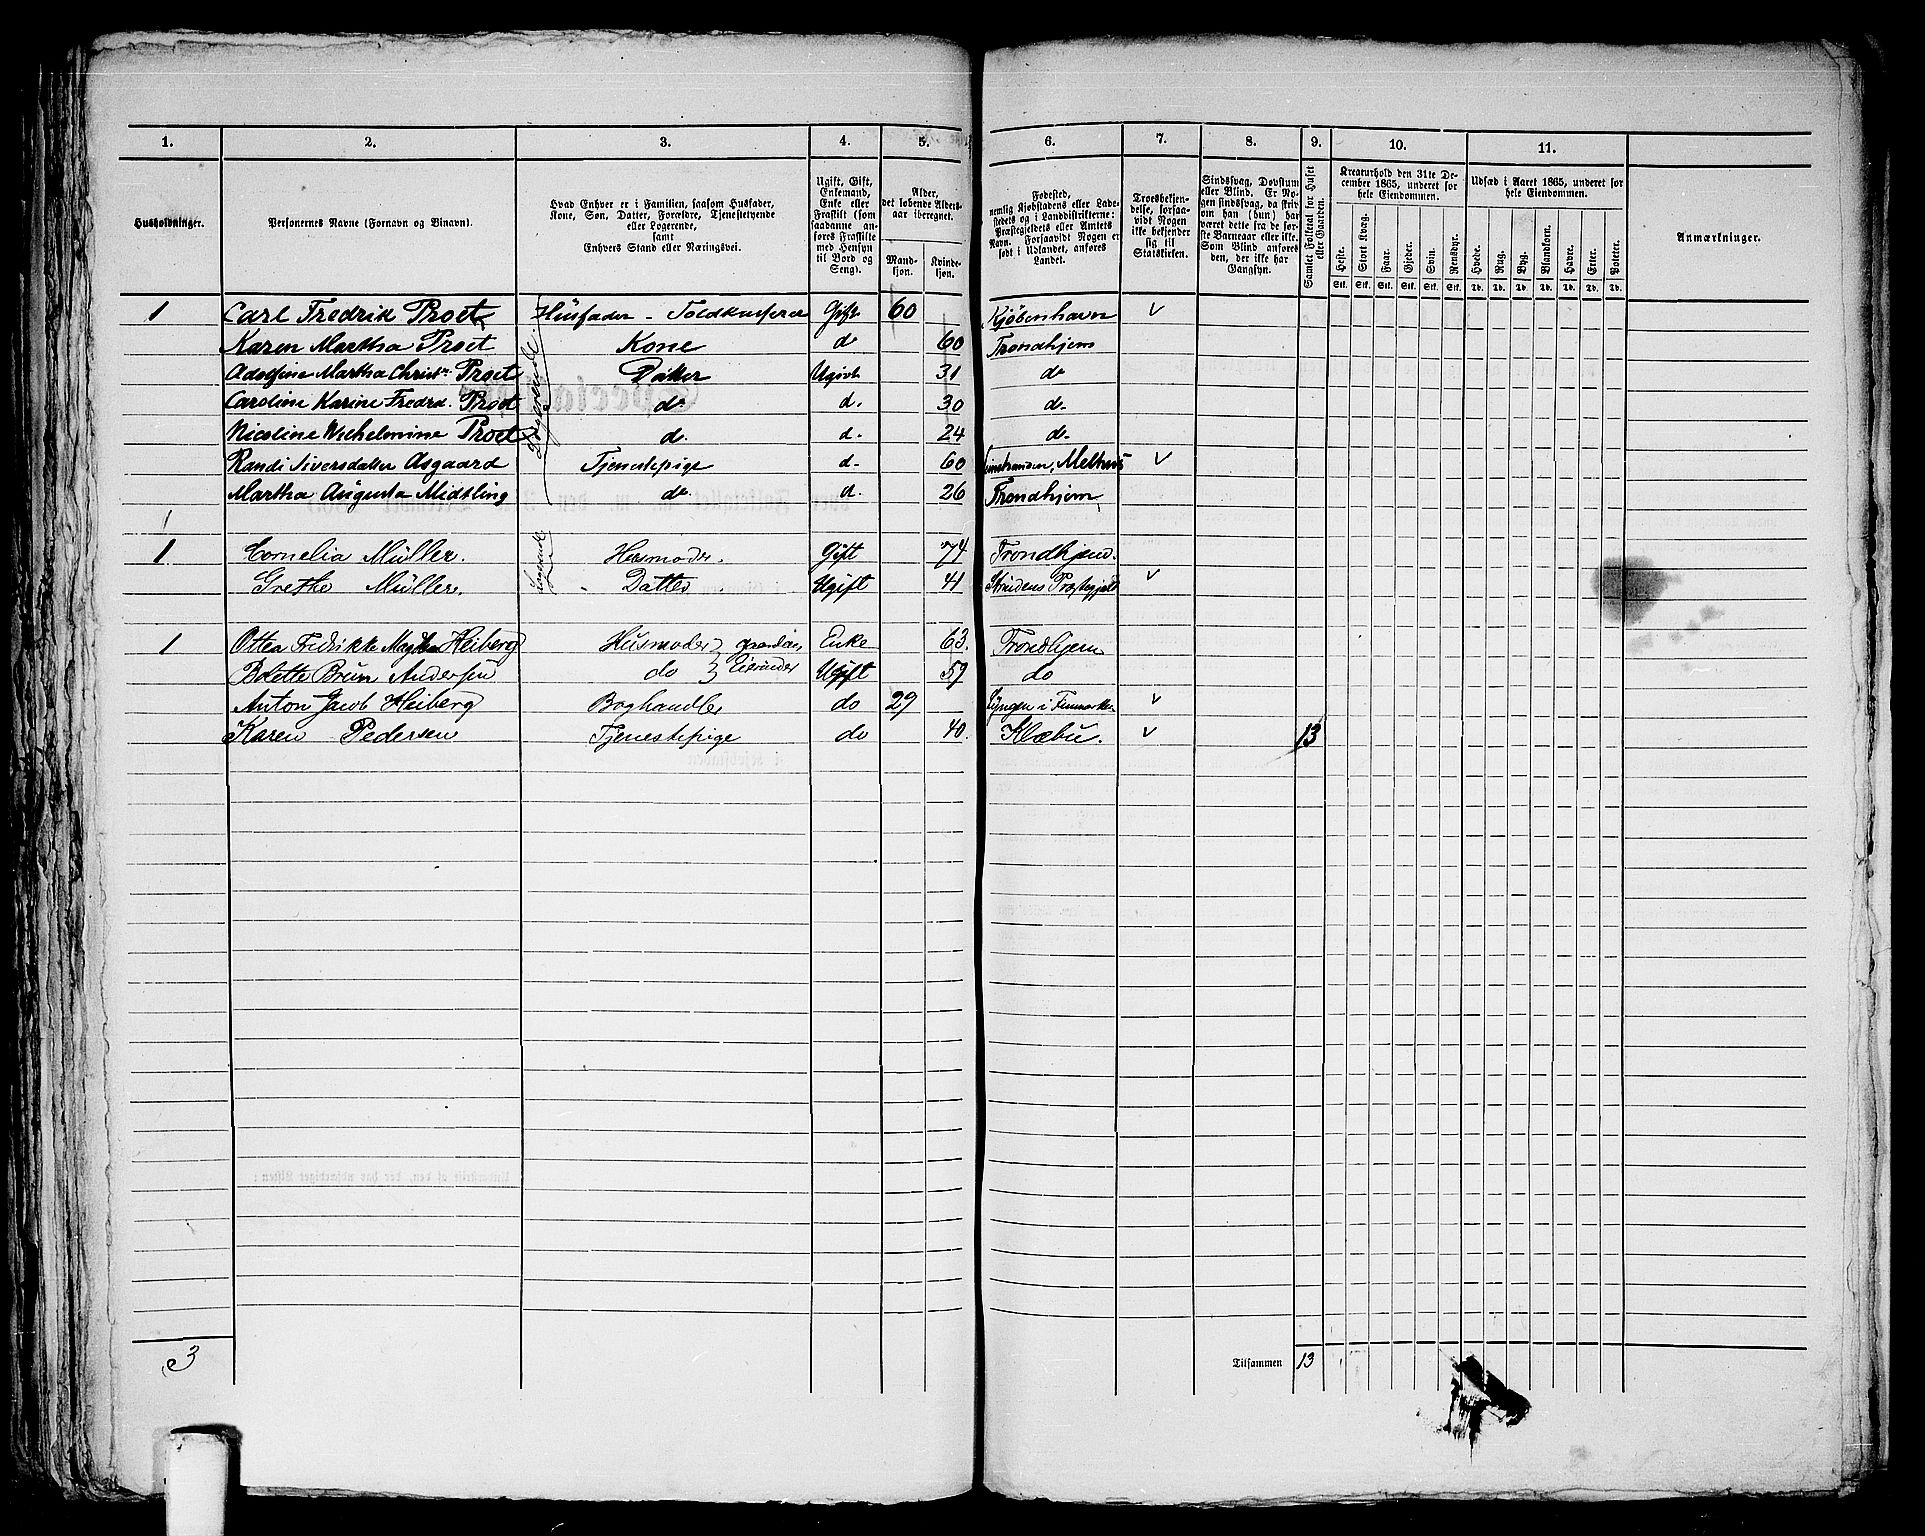 1. 2. 3. 4. 5. 6. 7. 8. 9. 10. 11.
Husholdninger.
Personernes Navne (Fornavn og Binavn).
Hvad Enhver er i Familien, saasom Husfader,
Kone, Søn, Datter, Forældre, Tjenestetyende
eller Logerende,
samt
Enhvers Stand eller Næringsvei.
Ugift, Gift,
Enkemand,
Enke eller
Fraskilt (som
saadanne an-
føres Fraskilte
med Hensyn
til Bord og
Seng).
Alder,
det løbende Alders-
aar iberegnet.
Mand-
kjøn.
Kvinde-
kjøn.
Fødested,
nemlig Kjøbstadens eller Lade-
stedets og i Landdistrikterne:
Præstegjeldets eller Amtets
Navn. Forsaavidt Nogen er
født i Udlandet, anføres
Landet.
Troesbekjen-
delse, forsaa-
vidt Nogen
ikke bekjender
sig til
Statskirken.
Sindssvag, Døvstum
eller Blind. Er No-
gen sindssvag, da skriv
om han (hun) har
været dette fra de før-
ste Barneaar eller ikke.
Som Blind anføres
den, der ikke har
Gangsyn.
Samlet Folketal for Huset
eller Gaarden.
Kreaturhold den 31te De-
cember 1865, underet for
hele Eiendommen.
Heste. Stort Kvæg. Faar. Gjeder. Svin. Rensdyr.
Stk. Stk. Stk. Stk. Stk. Stk.
Udsæd i Aaret 1865, underet for
hele Eiendommen.
Hvede. Rug. Byg. Blandkorn. Havre. Erter. Poteter.
Td. Td. Td. Td. Td. Td. Td.
Anmærkninger.
1 Carl Fredrik Proet Husfader - Gift 60 Kjøbenhavn
Karen Martha Proet Kone do 60 Trondhjem
Adolfine Martha Christ. Proet Datter Ugivt 31 do
Caroline Karine Fredrd. Proet do d. 30 d-
Nicoline Wilhelmine Proet d. d. 24 d-
Randi Siversdatter Asgaard Tjenestepige d. 60 Melhus
Martha Augusta Midtling do d. 26 Trondhjem
Logerende
1 Cornelia Müller. Husmoder. Gift 74 Trondhjem.
Grethe Müller. - Datter Ugift 41 Strindens Præstegjeld
Logerende
1 Ottea Fredrikke Heiberg Husmoder Enke 63. Trondhjem
Bolette Brun Andersen do Ugift 59 do
Anton Jacob Heiberg Boghandler do 29 Lyngen i Finmarken
Karen Pedersen Tjenestepige do 40. Klæbu. 13
3
Tilsammen 13